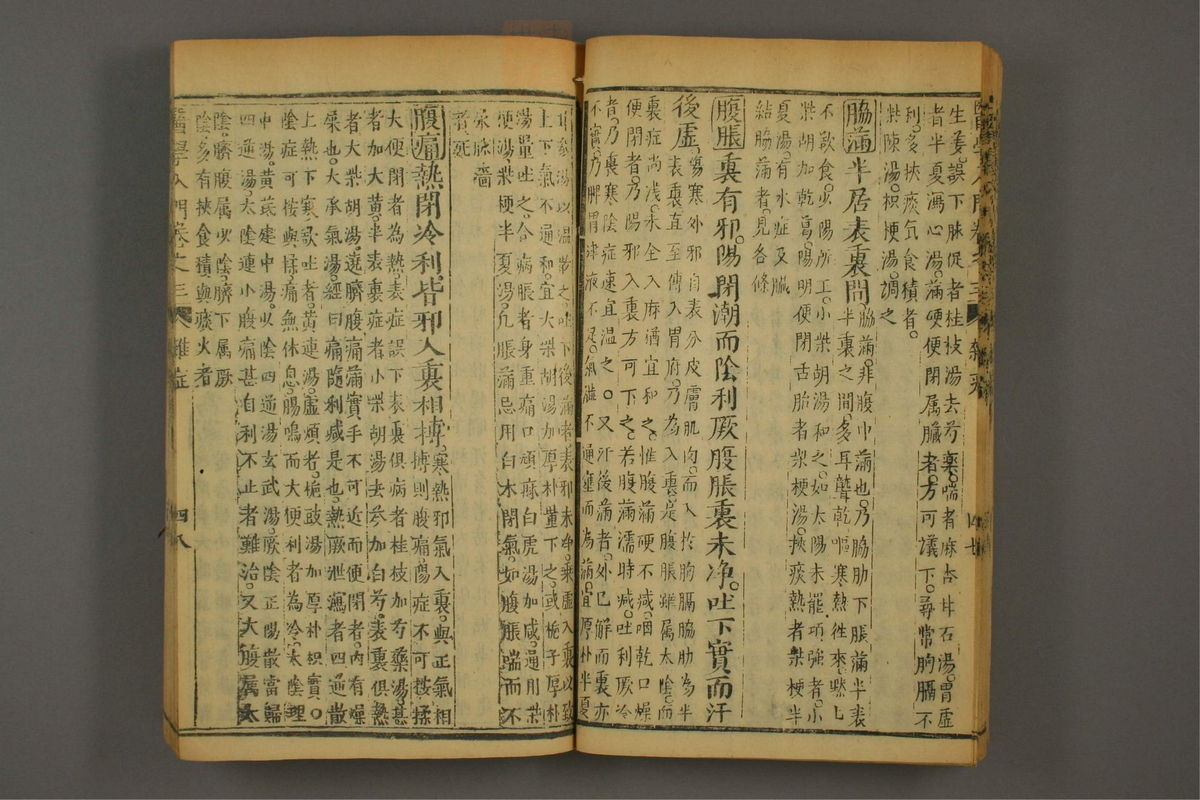 生姜誤下脉促者桂枝湯去芍藥喘者麻杏甘石湯胃虛
者半夏瀉心湯滿硬便閉属臟者方可議下尋常胸膈不
利多挾痰氣食積者
柴陳湯枳梗湯調之
脇滿半居表裏間
脇滿非腹中滿也乃脇肋下脹滿半表
半裏之間多耳聾乾嘔寒熱徃來默匕
不欲食少陽所主小柴胡湯和之如太陽未罷項強者小
柴胡加乾葛陽明便閉舌胎者柴梗湯挾痰熱者柴梗半
夏湯有水症又臟
結脇滿者見各條
腹脹裏有邪陽閉潮而陰利厥腹脹裏未净吐下實而汗
後虛
傷寒外邪自表分皮膚肌肉而入於胸膈脇肋為半
表裏直至傳入胃府乃為入裏是腹脹雖属太陰而
裏症尚浅未全入府猶宜和之惟腹滿硬不减咽乾口燥
便閉者乃陽邪入裏方可下之若腹滿濡時减吐利厥冷
者乃裏寒陰症速宜温之又汗後滿者外已解而裏亦
不實乃脾胃津液不足氣滥不通壅而為滿宜厚朴半夏
上下氣不通和宜大柴胡湯加厚朴薑下之或栀子厚朴
湯量吐之合病脹者身重痛口頑痳白虎湯加减通用柴
梗湯柴梗半夏湯凡脹滿忌用白术閉氣如腹脹喘而不
尿脉濇
者死
腹痛熱閉冷利皆邪入裏相摶
寒熱邪氣入裏與正氣相
摶則腹痛陽症不可按揉
大便閉者為熱表症誤下表裏俱病者桂枝加芍藥湯甚
者加大黃半表裏症者小柴胡湯去參加白芍表裏俱熱
者大柴胡湯遶臍腹痛滿實手不可近而便閉者内有燥
屎也大承氣湯經曰痛隨利减是也熱厥泄瀉者四逆散
上熱下寒欲吐者黃連湯虛煩者栀豉湯加厚朴枳實
陰症可按與揉痛無休息腸鳴而大便利者為冷太陰理
中湯黃芪建中湯少陰四逆湯玄武湯厥陰正陽散當歸
四逆湯太陰連小腹痛甚自利不止者難治又大腹属太
陰臍腹属少陰臍下属厥
陰多有挾食積與痰火者
醫學入門卷之三 雜症
四八